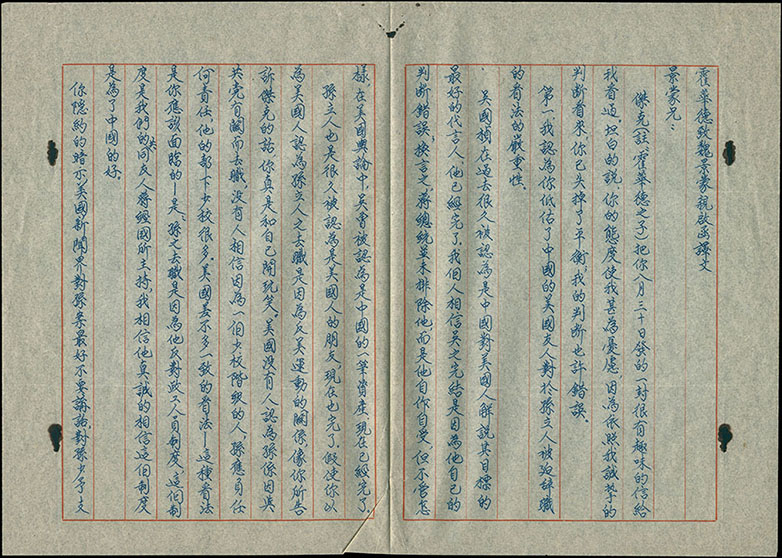 霍華德致魏景蒙親啟函譯文
景蒙兄：
傑克(註:霍華德之子)把你八月三十日發的一封很有趣味的信給
我看過,坦白的說,你的態度使我甚為憂慮,因為依照我誠摯的
判斷看來,你已失掉了平衡;我的判斷也許錯誤。
第一,我認為你低估了中國的美國友人對於孫立人被迫辞職
的看法的嚴重性。
吳國楨在過去很久被認為是中國對美國人解說其目標的
最好的代言人,他已經完了,我個人相信吳之完結是因為他自己的
判斷錯誤,換言之,蔣總統並未排除他而是他自作自受,但不管怎
樣,在美國輿論中,吳曾被認為是中國的一筆資產,現在已經完了。
孫立人也是很久被認為是美國人的朋友,現在也完了。假使你以
為美國人認為孫立人之去職是因為反美運動的關係像你所告
訴傑克的話,你真是和自己開玩笑。美國沒有人認為孫係因與
共党有關而去職,沒有人相信因為一個少校階級的人,孫應負任
何責任,他的部下少校很多。美國差不多一致的看法—這種看法
是你應該面臨的—是:孫之去職是因為他反對政工人員制度,這個制
度是我們的共同友人蔣經國所主持,我相信他真誠的相信這個制度
是為了中國的好。
你隱約的暗示美國新聞界對孫案最好不要講話對孫少予支